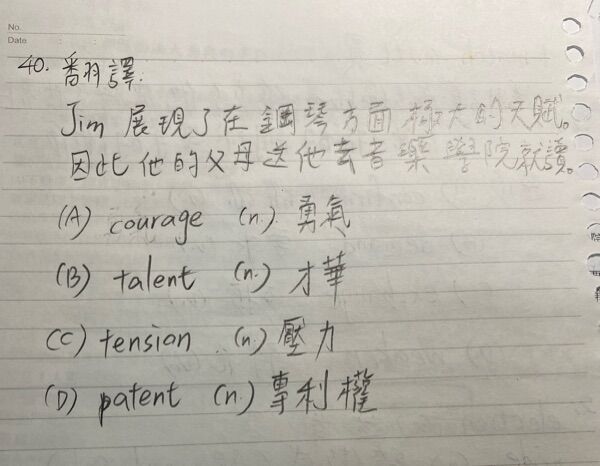 No.
Date
40. 翻譯.
Jim 展現了在鋼琴方面極大的天賦。
因此他的父母送他去音樂學院就讀。
(A) courage (n.) 勇氣
(B) talent (n.) 才華
(C) tension (n.) 壓力
(D) patent (n.) 專利權